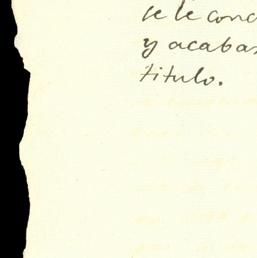 se le conc
y acabas
titulo.